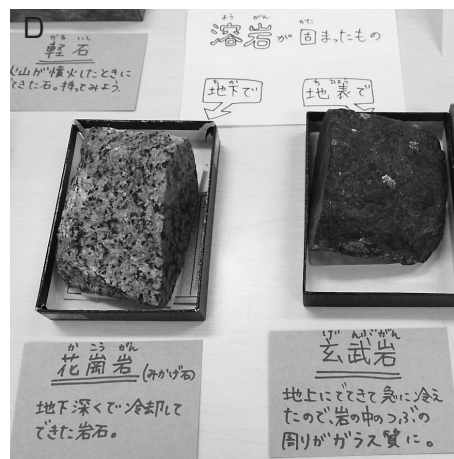 D
かる いし
軽石
火山が噴火したときに
できた石。持ってみよう。
よう がん かた
溶岩が固まったもの
ち か
地下で
ち ひょう
地表で
か こう がん
花崗岩(みかげ石)
地下深くで冷却して
できた岩石。
げんぶがん
玄武岩
地上にでてきて急に冷え
たので、岩の中のつぶの
周りがガラス質に。